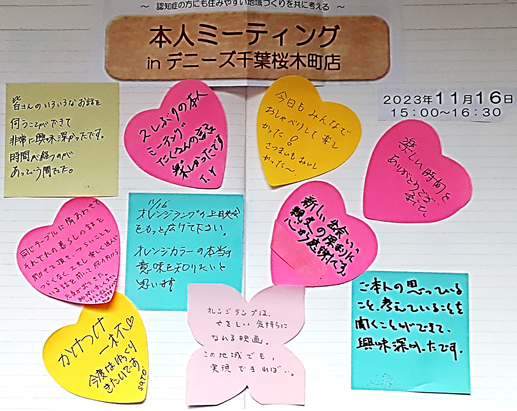 ～ 認知症の方にも住みやすい地域づくりを共に考える ～
本人ミーティング
in デニーズ千葉桜木町店
2023年11月16日
15:00～16:30
皆さんのいろいろなお話を
伺うことができて
非常に興味深かったです。
時間が経つのが
あっという間でした。
久しぶりの本人
ミーティング
たくさんの方と
楽しかったです
T.Y
今日もみんなで
おしゃべりして楽し
かった！
さつまいもおいし
かった〜
楽しい時間を
ありがとうござい
ました。
同じテーブルに隣あわせ
それぞれの暮らしのお話を
聞かせて頂き
11/16
オレンジランプの上映会を
もっと広げて下さい。
オレンジカラーの本当の
意味を知りたいと
思います
新しい出会い
想定の便利に
心から感謝です。
かけつけ
一杯
今度はゆっくり
きたいです
sato
オレンジランプは、
やさしい気持ちに
なれる映画。
この地域でも、
実現できれば…。
ご本人の思っている
こと、考えていることを
聞くことができて、
興味深かったです。